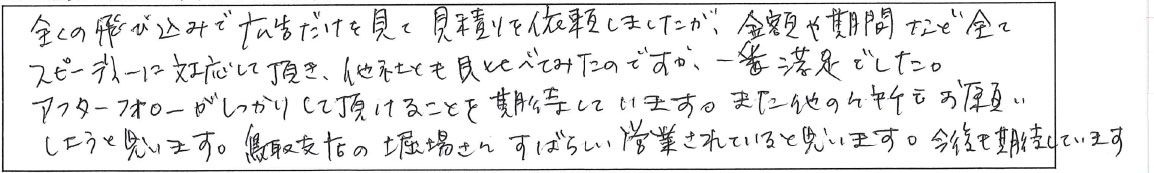 全くの飛び込みで広告だけを見て見積りを依頼しましたが、金額や期間など全て
スピーディーに対応して頂き、他社とも見比べてみたのですが、一番満足でした。
アフターフォローがしっかりして頂けることを期待しています。また他のケ所もお願い
したうと思います。鳥取支店の堀場さんすばらしい営業されていると思います。今後も期待しています